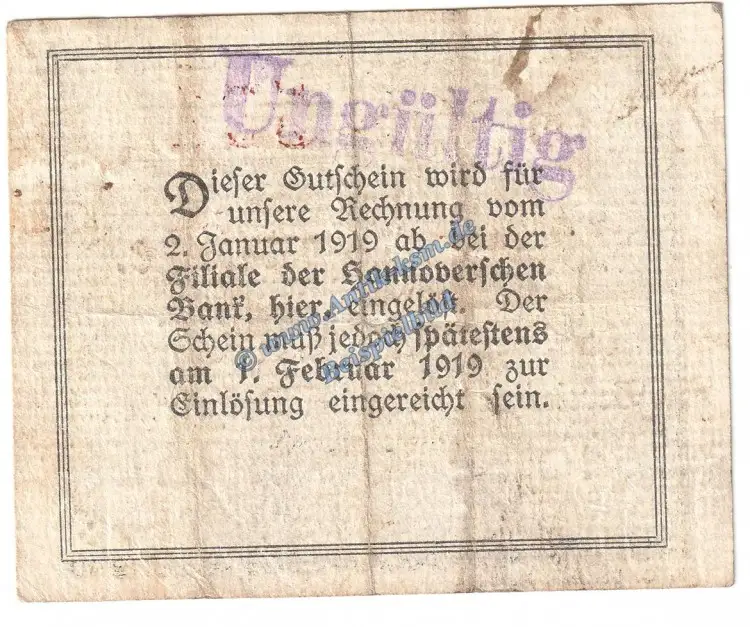 Ungültig
Dieser Gutschein wird für
unsere Rechnung vom
2. Januar 1919 ab bei der
Filiale der Hannoverschen
Bank, hier, eingelöst. Der
Schein muß jedoch spätestens
am 1. Februar 1919 zur
Einlösung eingereicht sein.
© www.Antik1ksm.de
Beispielbild